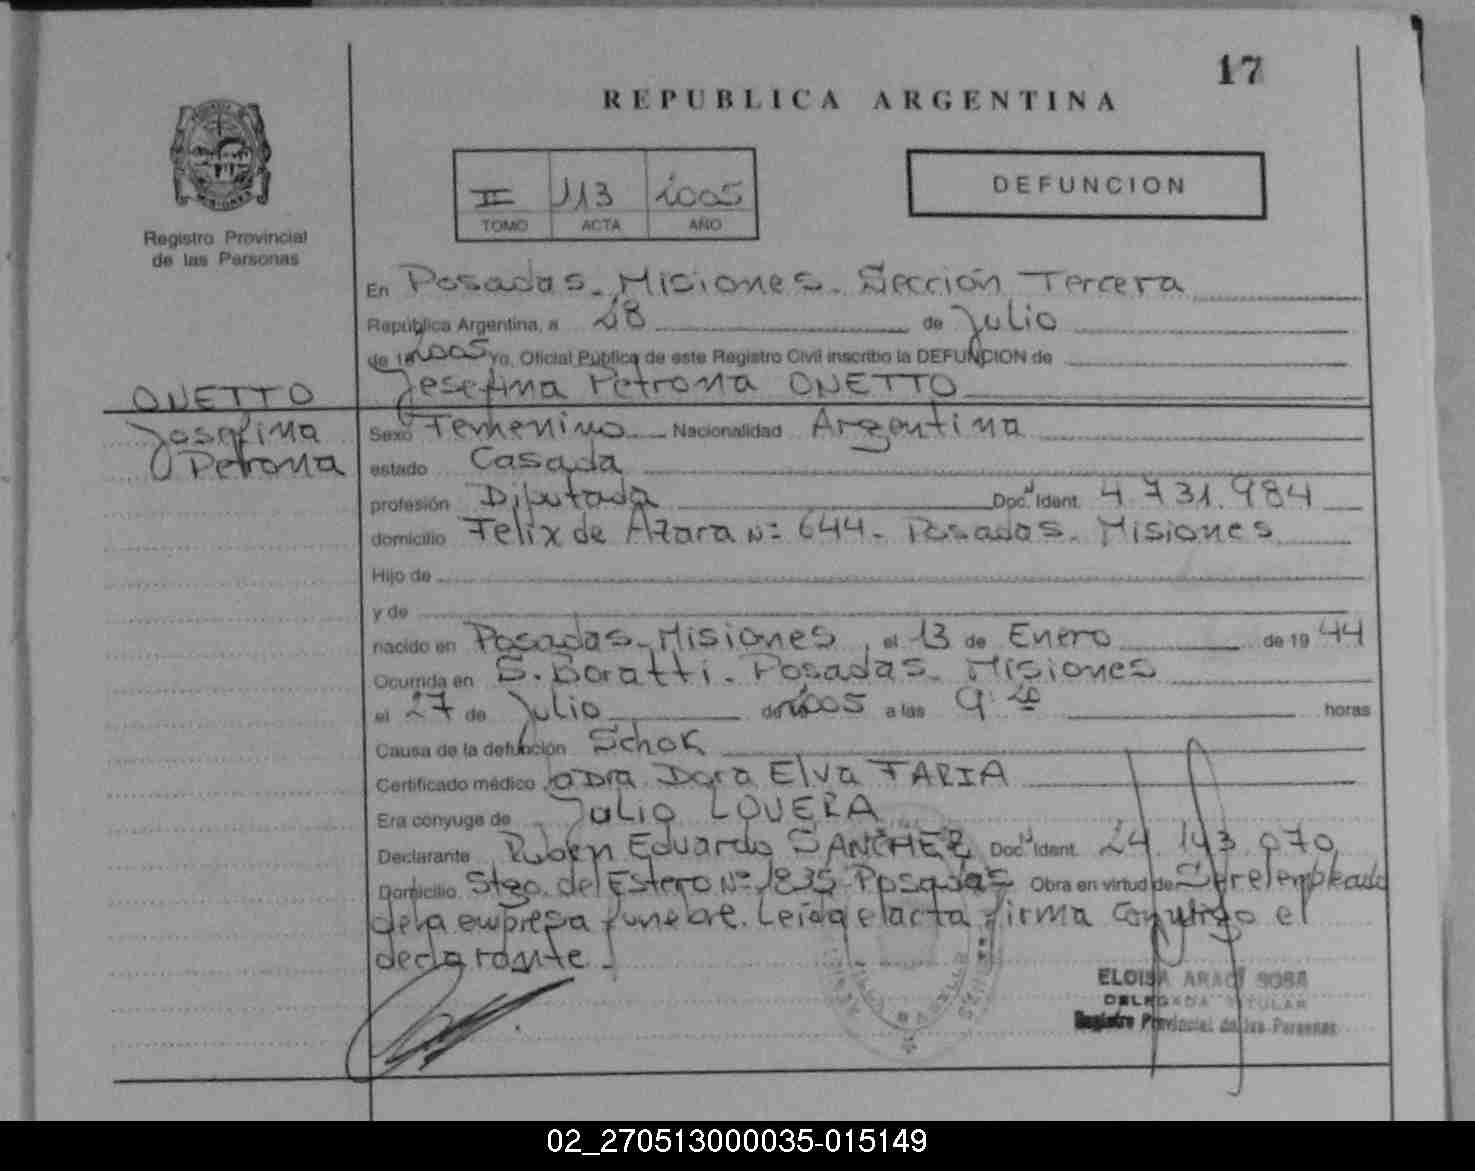 17
REPUBLICA ARGENTINA
II 113 2005
TOMO ACTA AÑO
DEFUNCION
Registro Provincial
de las Personas
En Posadas - Misiones - Sección Tercera
República Argentina, a 28 de Julio
de 2005 Yo, Oficial Público de este Registro Civil inscribo la DEFUNCION de
Josefina Petrona ONETTO
ONETTO
Josefina
Petrona
Sexo Femenino Nacionalidad Argentina
estado Casada
profesión Diputada Doc. Ident. 4.731.984
domicilio Felix de Azara Nº 644 - Posadas - Misiones
Hijo de
y de
nacido en Posadas - Misiones, el 13 de Enero de 1944
Ocurrida en S. Boratti - Posadas - Misiones
el 27 de Julio de 2005 a las 9:20 horas
Causa de la defunción Schok
Certificado médico Dra Dora Elva FARIA
Era conyuge de Julio LOVERA
Declarante Ruben Eduardo SANCHEZ Doc. Ident. 24.143.070
Domicilio Stgo. del Estero Nº 1835 Posadas Obra en virtud de Ser el empleado
de la empresa funebre. Leida el acta firma conmigo el
declarante.
ELOISA ARACI SOSA
DELEGADA TITULAR
Registro Provincial de las Personas
02_270513000035-015149